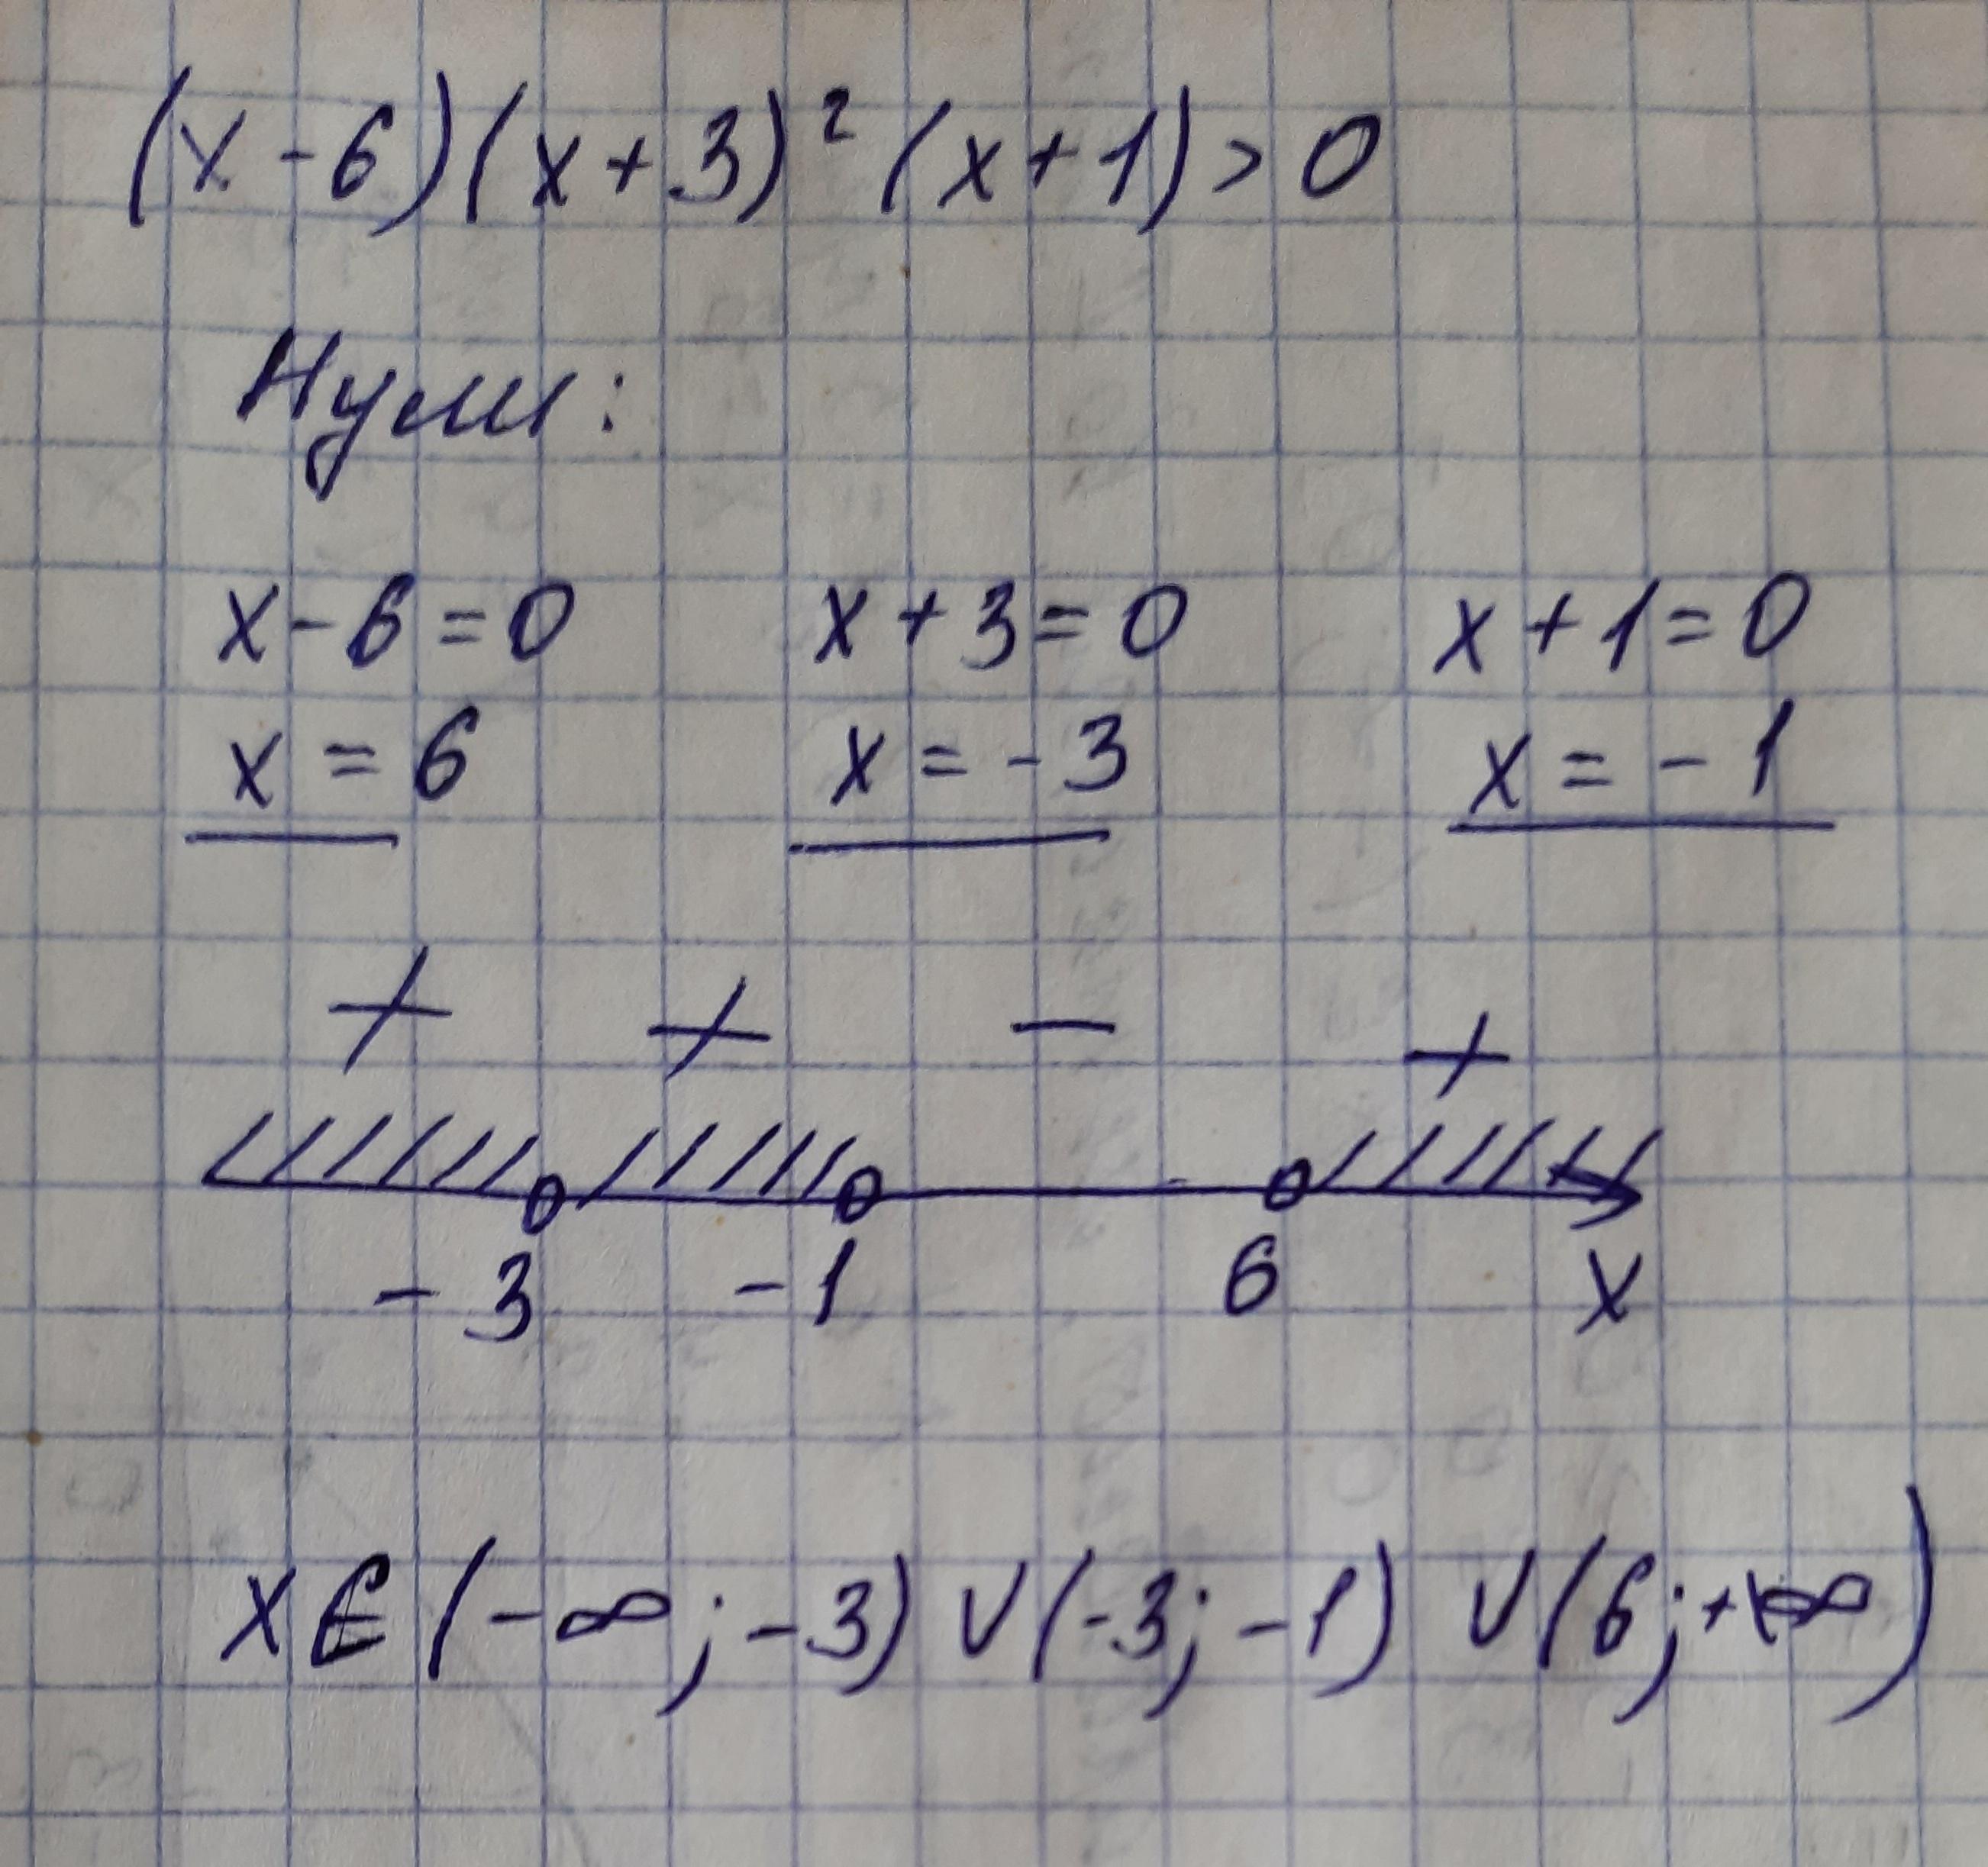 (x-6)(x+3)² (x+1)>0
Нули:
x-6=0 x+3=0 x+1=0
x=6 x=-3 x=-1
+ + - +
-3 -1 6 x
x∈(-∞;-3)∪(-3;-1)∪(6;+∞)